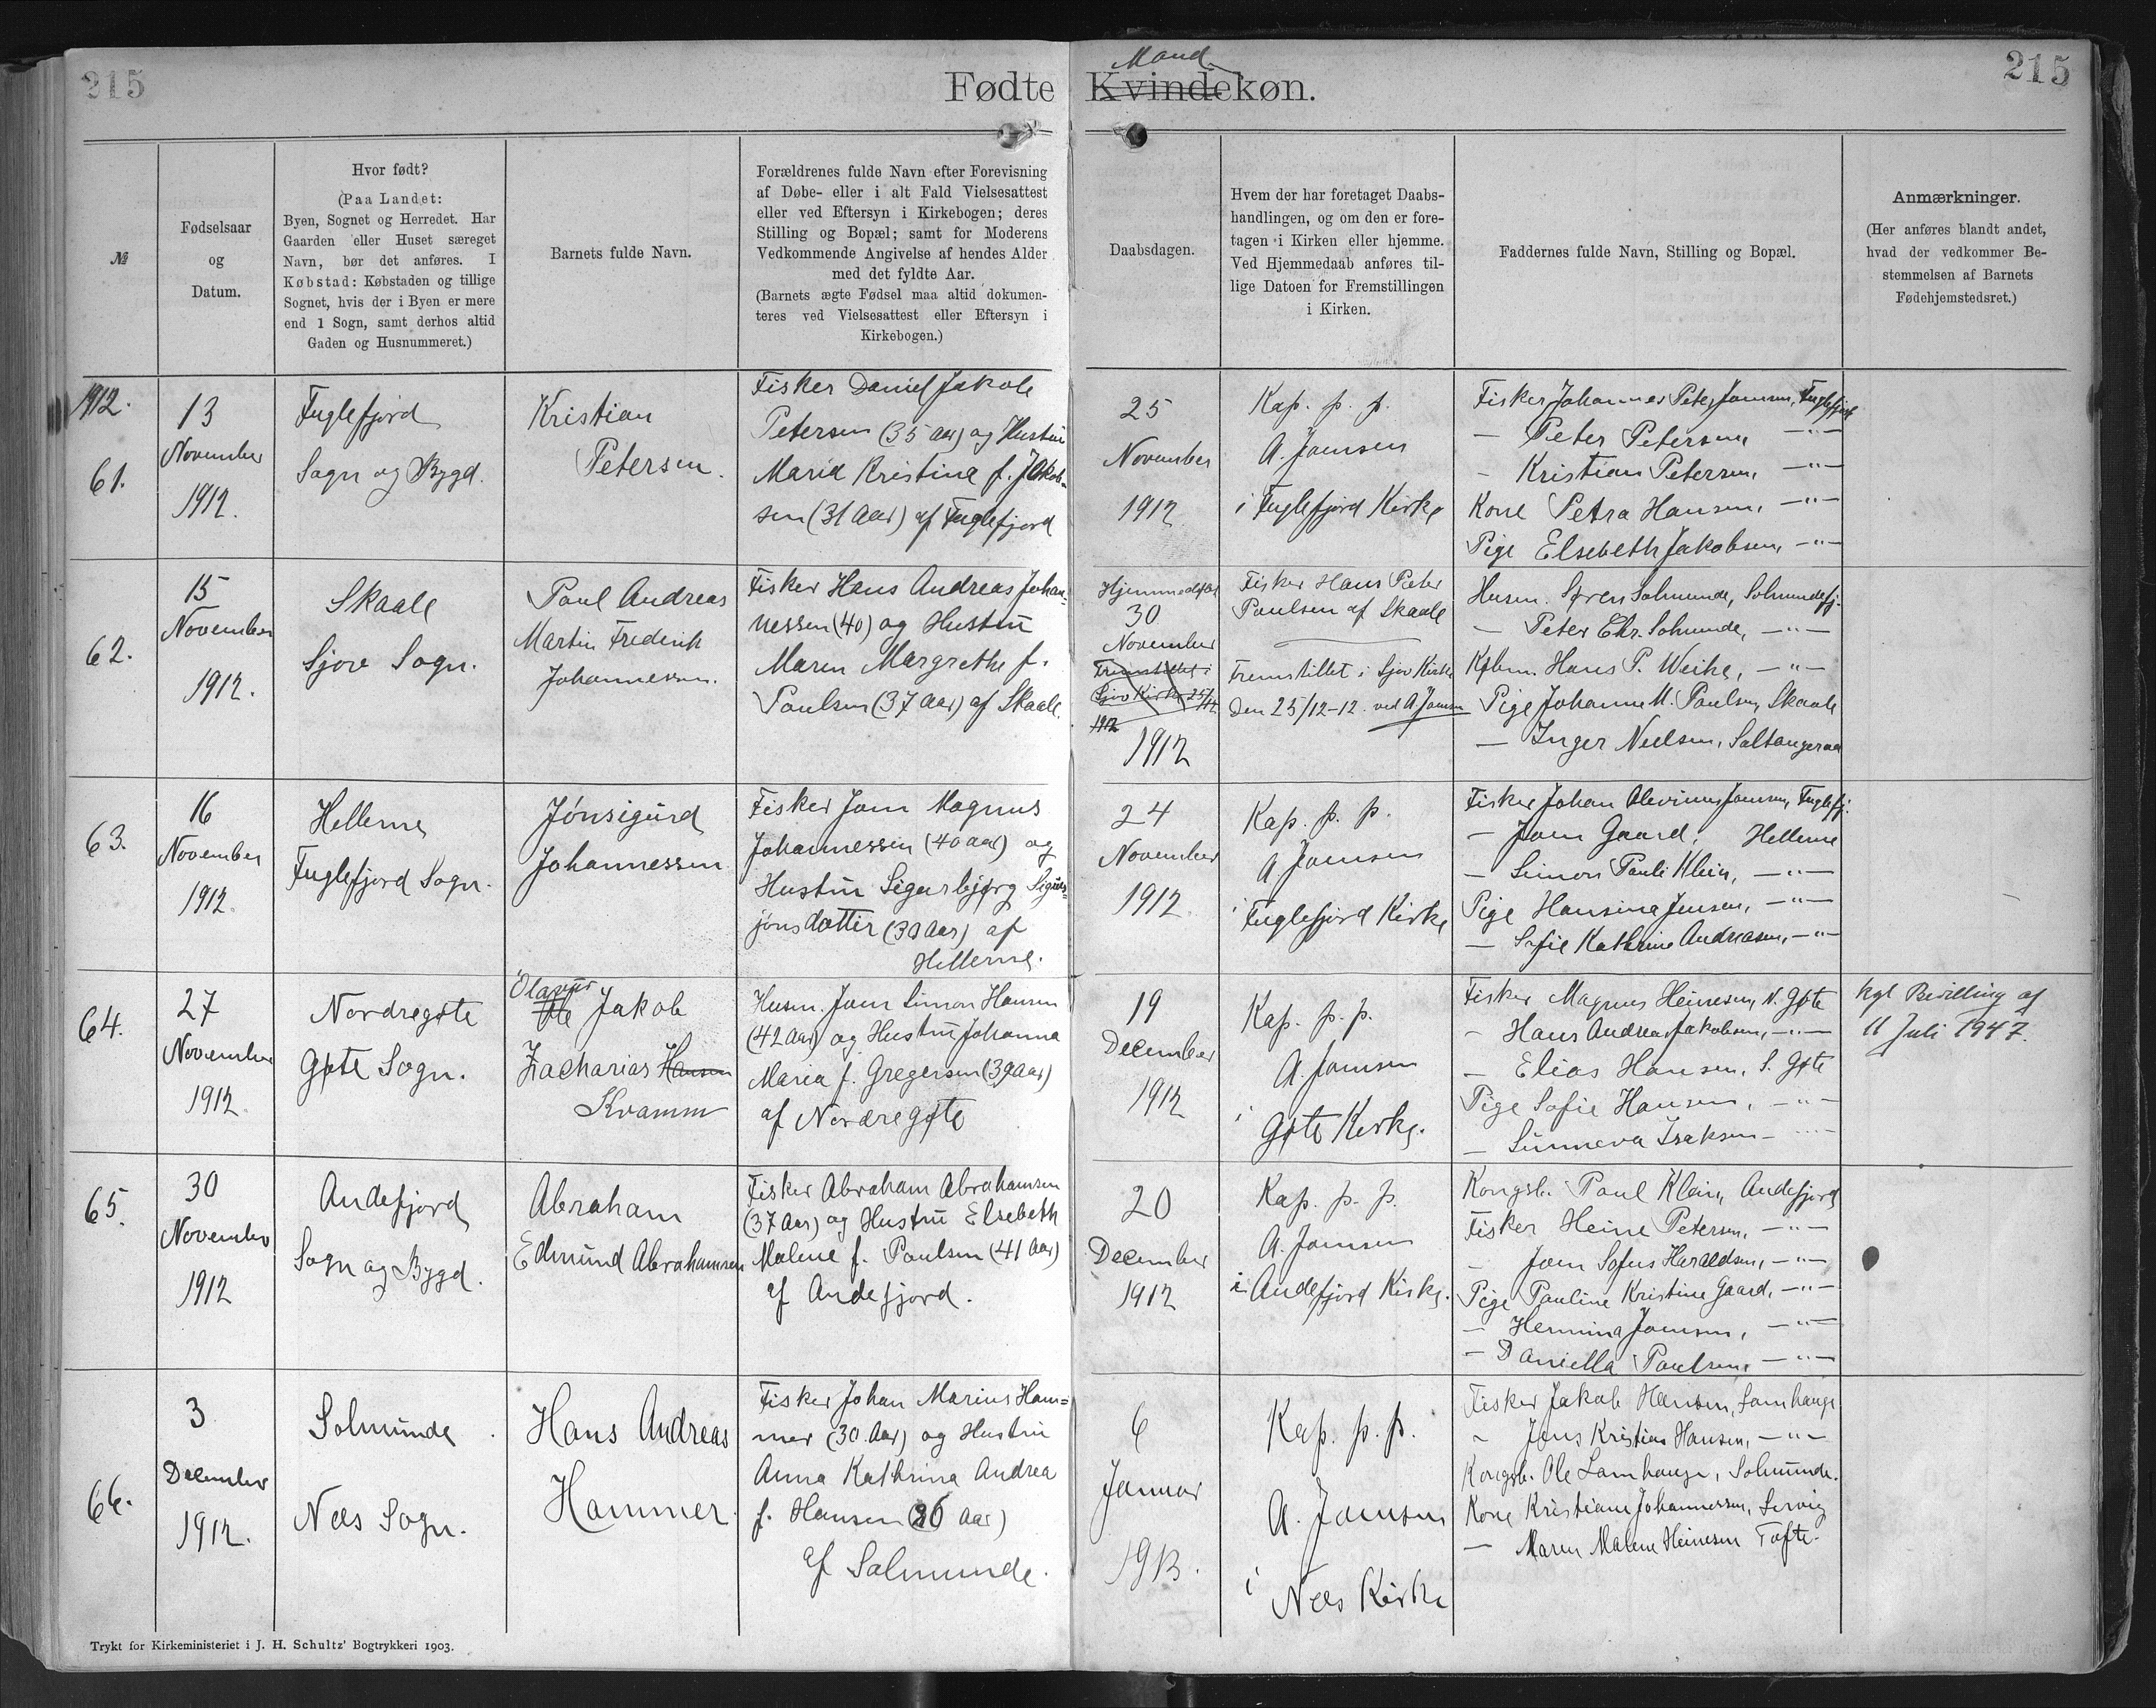 215
Fødte
Mand
Kvindekøn.
215
№
Fødselsaar
og
Datum.
Hvor født?
(Paa Landet:
Byen, Sognet og Herredet. Har
Gaarden eller Huset særeget
Navn, bør det anføres. I
Købstad: Købstaden og tillige
Sognet, hvis der i Byen er mere
end 1 Sogn, samt derhos altid
Gaden og Husnummeret.)
Barnets fulde Navn.
Forældrenes fulde Navn efter Forevisning
af Døbe- eller i alt Fald Vielsesattest
eller ved Eftersyn i Kirkebogen; deres
Stilling og Bopæl; samt for Moderens
Vedkommende Angivelse af hendes Alder
med det fyldte Aar.
(Barnets ægte Fødsel maa altid dokumen-
teres ved Vielsesattest eller Eftersyn i
Kirkebogen.)
Daabsdagen.
Hvem der har foretaget Daabs-
handlingen, og om den er fore-
tagen i Kirken eller hjemme.
Ved Hjemmedaab anføres til-
lige Datoen for Fremstillingen
i Kirken.
Faddernes fulde Navn, Stilling og Bopæl.
Anmærkninger.
(Her anføres blandt andet,
hvad der vedkommer Be-
stemmelsen af Barnets
Fødehjemstedsret.)
1912.
61.
13
November
1912.
Fuglefjord
Sogn og Bygd.
Kristian
Petersen.
Fisker Daniel Jakob
Petersen (35 aar) og Hustru
Maria Kristina f. Jakob-
sen (31 Aar) af Fuglefjord
25
November
1912
Kap. p. p.
A. Joensen
i Fuglefjord Kirke
Fisker Johannes Peter Joensen, Fuglefjord
— Peter Petersen, —"—
— Kristian Petersen, —"—
Kone Petra Hansen, —"—
Pige Elsebeth Jakobsen, —"—
62.
15
November
1912.
Skaale
Sjov Sogn.
Poul Andreas
Martin Frederik
Johannessen.
Fisker Hans Andreas Johan-
nessen (40) og Hustru
Maren Margrethe f.
Poulsen (37 Aar) af Skaale.
Hjemmedøbt
30
November
Fremstillet i
Sjov Kirke 25/12
1912
1912
Fisker Hans Peter
Poulsen af Skaale
Fremstillet i Sjov Kirke
den 25/12-12. ved A. Joensen
Husm. Søren Solmunde, Solmundefj.
— Peter Chr. Solmunde, —"—
Købm. Hans P. Weihe, —"—
Pige Johanne M. Poulsen, Skaale
— Inger Nielsen, Saltangeraa
63.
16
November
1912.
Hellerne
Fuglefjord Sogn.
Jónsigurd
Johannessen
Fisker Joen Magnus
Johannessen (40 aar) og
Hustru Sigurbjørg Sigur-
jónsdottir (30 Aar) af
Hellerne.
24
November
1912.
Kap. p. p.
A. Joensen
i
Fuglefjord Kirke
Fisker Johan Olevinus Joensen, Fuglefj.
— Joen Gaard, Hellerne
— Simon Pauli Klein, —"—
Pige Hansina Jensen, —"—
— Sofie Kathrine Andreasen, —"—
64.
27
November
1912.
Nordregøte
Gøte Sogn.
Olavur
Ole Jakob
Zacharias Hansen
Kvamm
Husm. Joen Simon Hansen
(42 Aar) og Hustru Johanna
Maria f. Gregersen (39 aar)
af Nordregøte
19
December
1912
Kap. p. p.
A. Joensen
i
Gøte Kirke.
Fisker Magnus Heinesen, N. Gøte
— Hans Andreas Jakobsen, —"—
— Elias Hansen, S. Gøte
Pige Sofie Hansen, —"—
— Sunneva Isaksen —"—
Kgl Bevilling af
11 Juli 1947.
65.
30
November
1912
Andefjord
Sogn og Bygd.
Abraham
Edmund Abrahamsen
Fisker Abraham Abrahamsen
(37 Aar) og Hustru Elsebeth
Malene f. Poulsen (41 Aar)
af Andefjord.
20
December
1912
Kap. p. p.
A. Joensen
i Andefjord Kirke.
Kongsb. Poul Klein, Andefjord
Fisker Heine Petersen, —"—
— Joen Sofus Haraldsen, —"—
Pige Pauline Kristine Gaard, —"—
— Hermina Joensen, —"—
— Daniella Poulsen —"—
66.
3
December
1912.
Solmunde
Næs Sogn.
Hans Andreas
Hammer.
Fisker Johan Marius Ham-
mer (30 Aar) og Hustru
Anna Kathrina Andrea
f. Hansen (26 Aar)
af Solmunde.
6
Januar
1913.
Kap. p. p.
A. Joensen
i
Næs Kirke
Fisker Jakob Hansen, Lamhauge
— Jens Kristian Hansen, —"—
Kongsb. Ole Lamhauge, Solmunde.
Kone Kristiane Johannessen, Lervig
— Maren Malene Heinesen Tofte.
Trykt for Kirkeministeriet i J. H. Schultz' Bogtrykkeri 1903.